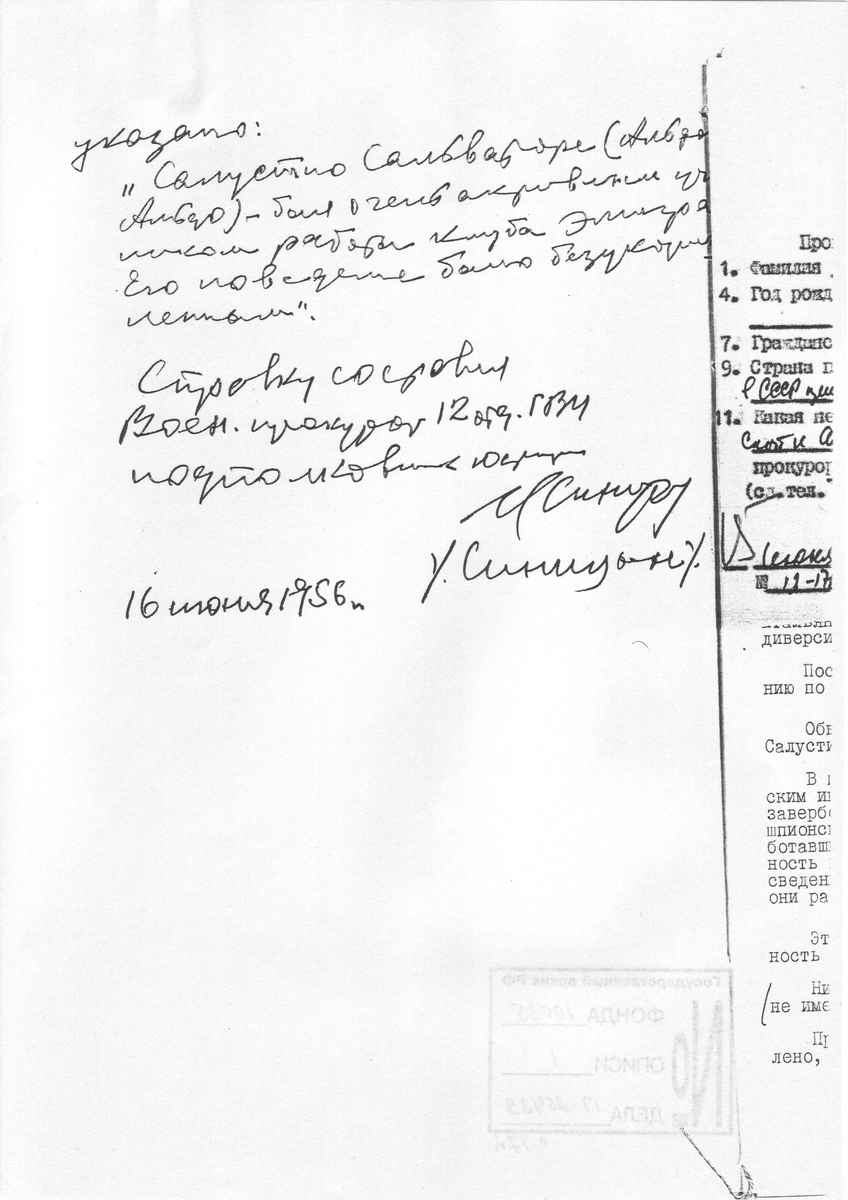 указано:
„Салустио Сальваторе (Альдо
Альдо) – был очень активным уч
ником работы клуба Эмигра
Его поведение было безукориз
ненным".
Справку составил
Воен. прокурор 12 отд. ГВП
подполковник юстиции
/Синицын/.
16 июня 1956 г.
Про
1. Фамилия
4. Год рожд
7. Гражданс
9. Страна п
в СССР
11. Какая не
прокурор
(сл.тел.
июня
№ 12-17
диверси
Пос
нию по
Обв
Салусти
В
ским
завербо
шпионс
ботавш
ность
сведен
они ра
Эт
ность
Ни
не име
Пр
лено,
Государственный архив РФ
№
ФОНДА 10035
ОПИСИ 1
ДЕЛА